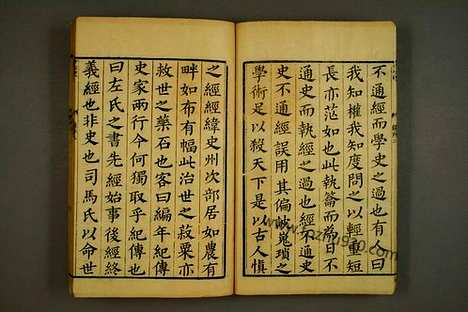 不通經而學史之過也有人曰
我知權我知度問之以輕重短
長亦茫如也此執籥而為日不
通史而執經之過也經不通史
史不通經誤用其偏帔嵬瑣之
學術足以殺天下是以古人慎
之經經緯史州次部居如農有
畔如布有幅此治世之菽粟亦
救世之藥石也客曰編年紀傳
史家兩行今何獨取乎紀傳也
曰左氏之書先經始事後經終
義經也非史也司馬氏以命世